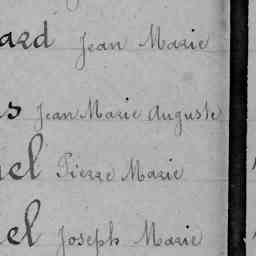 ard Jean Marie
s Jean Marie Auguste
el Pierre Marie
el Joseph Marie